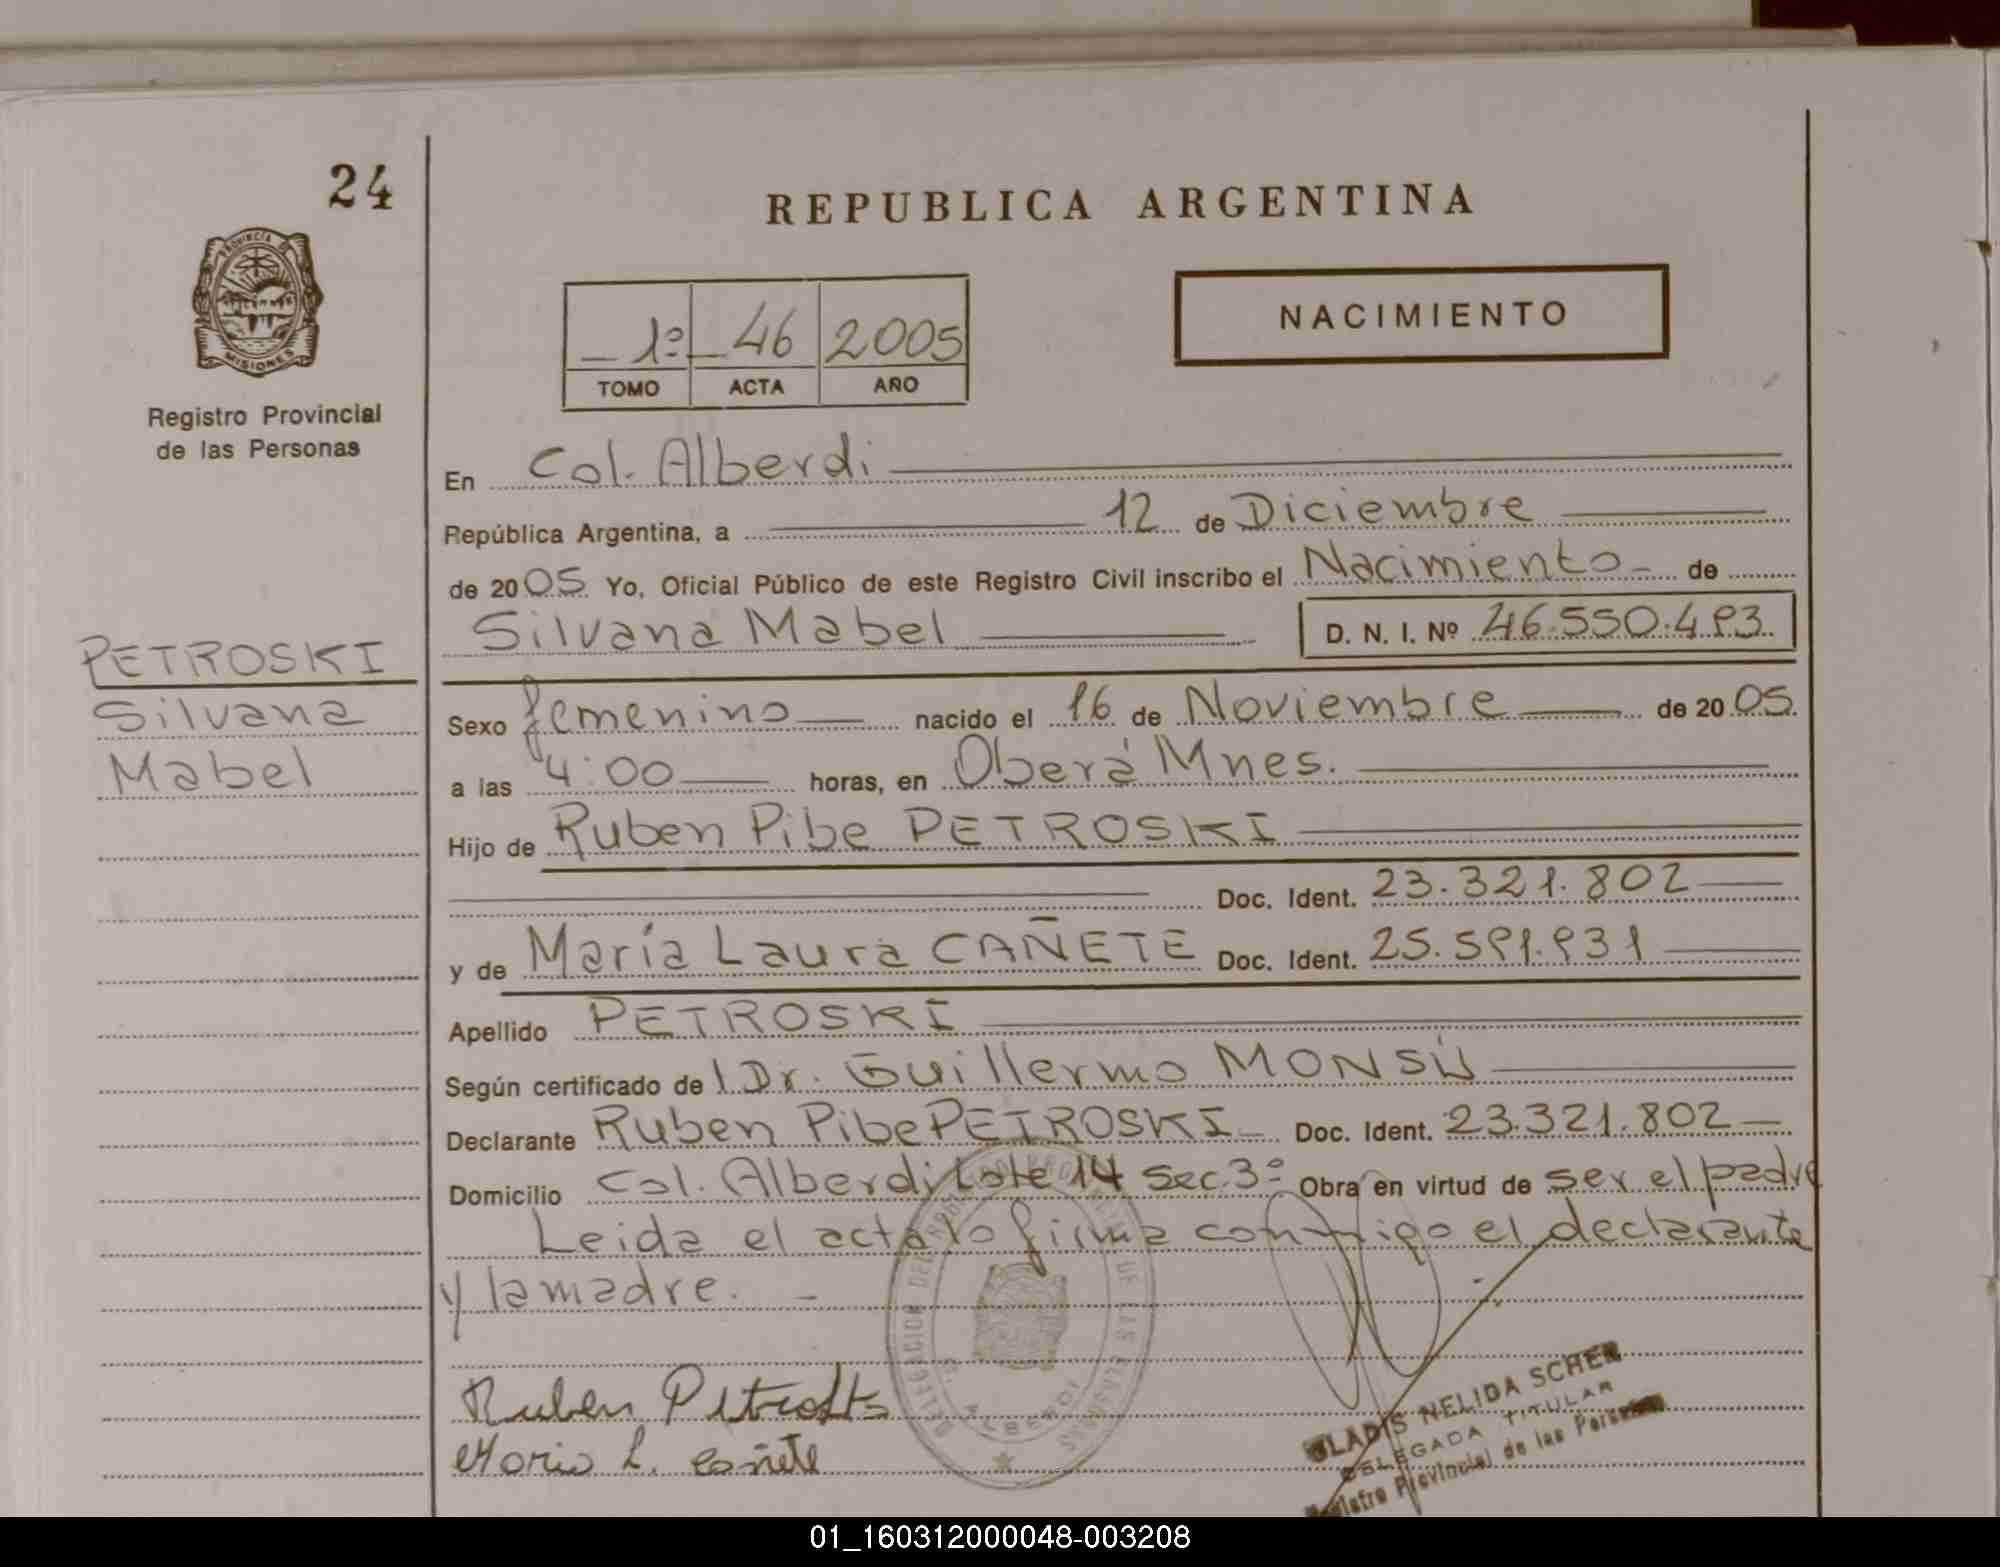 24
REPUBLICA ARGENTINA
PROVINCIA DE
MISIONES
Registro Provincial
de las Personas
1º 46 2005
TOMO ACTA AÑO
NACIMIENTO
En Col. Alberdi
República Argentina, a 12 de Diciembre
de 2005 Yo, Oficial Público de este Registro Civil inscribo el Nacimiento de
Silvana Mabel D. N. I. Nº 46.550.493
PETROSKI
Silvana
Mabel
Sexo femenino nacido el 16 de Noviembre de 2005
a las 4:00 horas, en Oberá Mnes.
Hijo de Ruben Pibe PETROSKI
Doc. Ident. 23.321.802
y de María Laura CAÑETE Doc. Ident. 25.591.931
Apellido PETROSKI
Según certificado de l Dr. Guillermo MONSÚ
Declarante Ruben Pibe PETROSKI Doc. Ident. 23.321.802
Domicilio Col. Alberdi Lote 14 Sec. 3º Obra en virtud de ser el padre
Leida el acta lo firma conmigo el declarante
y la madre.
Ruben Petroski
Maria L. Cañete
DELEGACION DEL REGISTRO PROVINCIAL DE LAS PERSONAS
ALBERDI
GLADIS NELIDA SCHER
DELEGADA TITULAR
Registro Provincial de las Personas
01_160312000048-003208